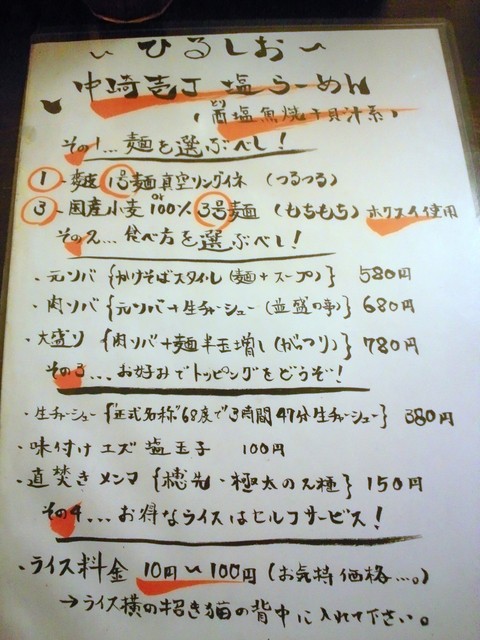 ~ ひるしお ~
中崎壱丁 塩らーめん
(酉塩魚焼干貝汁系)
とり
その1…麺を選ぶべし!
① 麩皮 1号麺 真空リングイネ (つるつる)
or
③ 国産小麦100% 3号麺 (もちもち) ホクエイ使用
その2…食べ方を選ぶべし!
・元ソバ {かけそばスタイル(麺+スープ)} 580円
・肉ソバ {元ソバ+生チャーシュー(並盛の事)} 680円
・大盛り {肉ソバ+麺半玉増し(がっつり)} 780円
その3…お好みでトッピングをどうぞ!
・生チャーシュー{"正式名称"68度で3時間47分生チャーシュー} 380円
・味付けエズ塩玉子 100円
・直焚きメンマ {穂先・極太の2種} 150円
その4…お得なライスはセルフサービス!
・ライス料金 10円〜100円 (お気持価格…。)
→ライス横の招き猫の背中に入れて下さい。